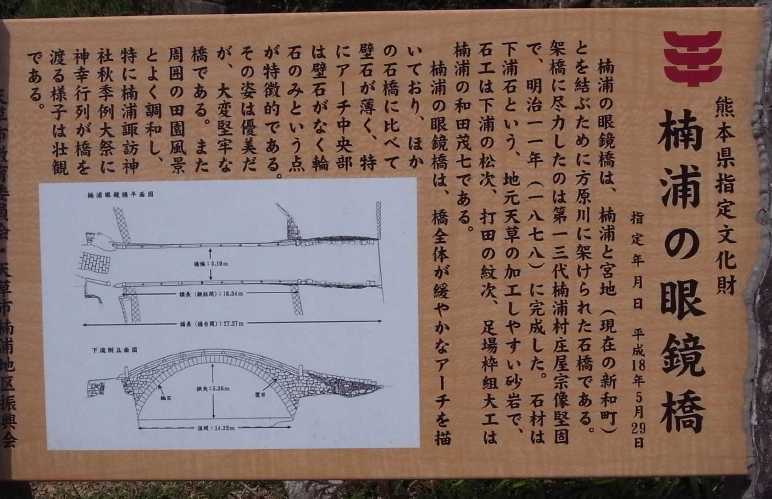 熊本県指定文化財
楠浦の眼鏡橋
指定年月日 平成18年5月29日
楠浦の眼鏡橋は、楠浦と宮地（現在の新和町）
とを結ぶために方原川に架けられた石橋である。
架橋に尽力したのは第一三代楠浦村庄屋宗像堅固
で、明治一一年（一八七八）に完成した。石材は
下浦石という、地元天草の加工しやすい砂岩で、
石工は下浦の松次、打田の紋次、足場枠組大工は
楠浦の和田茂七である。
楠浦の眼鏡橋は、橋全体が緩やかなアーチを描
いており、ほか
の石橋に比べて
壁石が薄く、特
にアーチ中央部
は壁石がなく輪
石のみという点
が特徴的である。
その姿は優美だ
が、大変堅牢な
橋である。また
周囲の田園風景
とよく調和し、
特に楠浦諏訪神
社秋季例大祭に
神幸行列が橋を
渡る様子は壮観
である。
天草市教育委員会・天草市楠浦地区振興会
楠浦眼鏡橋平面図
橋幅：3.10m
橋長（橋台間）：27.27m
下流側立面図
輪石
壁石